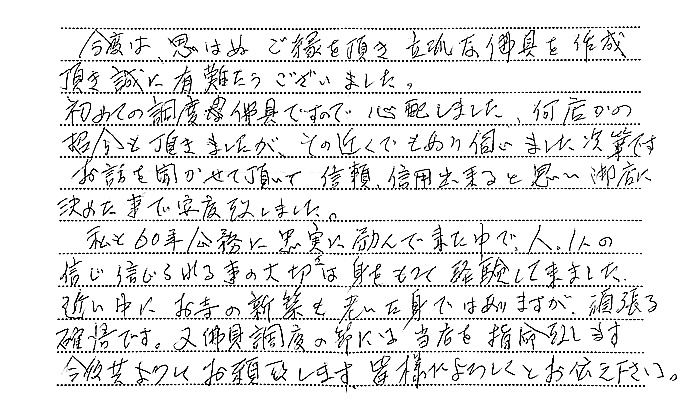 今度は、思はぬご縁を頂き立派な佛具を作成
頂き誠に有難たうございました。
初めての調度佛具ですので心配しました、何店かの
紹介も頂きましたが、その近くでもあり伺いました次第です
お話を聞かせて頂いて信頼、信用出来ると思い御店に
決めた事で安度致しました。
私も60年公務に忠実に励んで来た中で、人、1人の
信じ信じられる事の大切さは身をもって経験して来ました。
近い中にお寺の新築も老いた身ではありますが、頑張る
確悟です。又佛具調度の節には当店を指命致します
今後共よろしくお願致します、皆様によろしくとお伝え下さい。